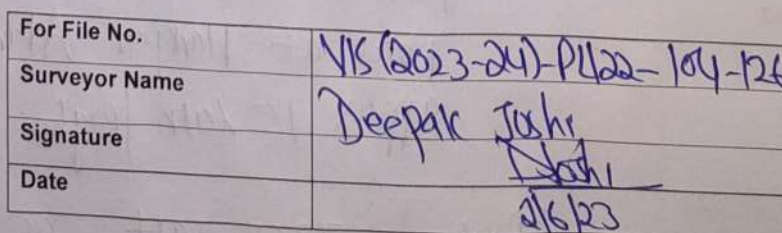 For File No. VIS (2023-24)-PL422-104-126
Surveyor Name Deepak Joshi
Signature DJoshi
Date 2/6/23